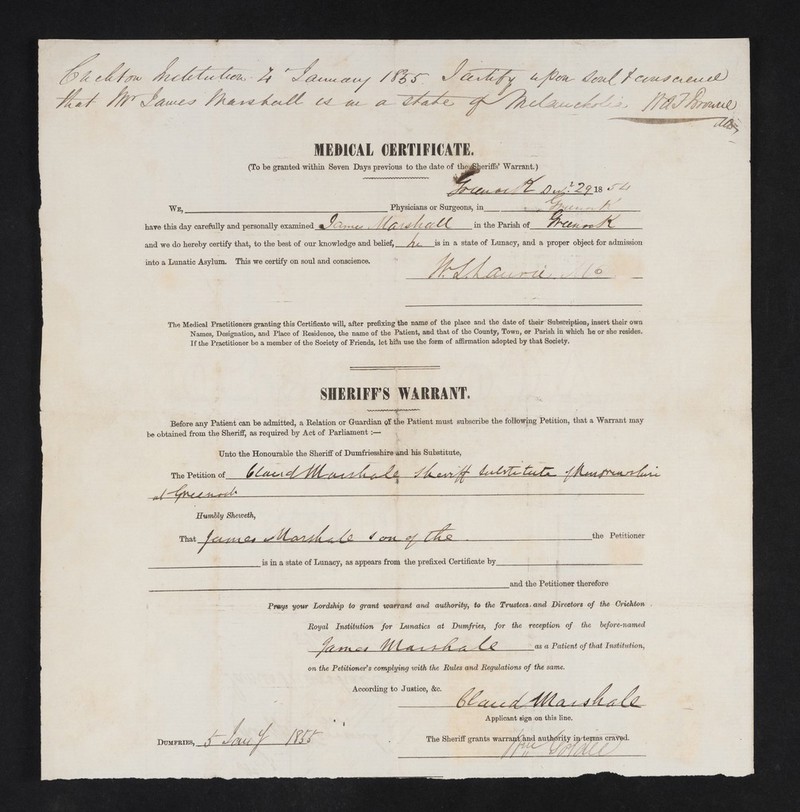 Crichton Institution 4 January 1855 I certify upon soul & conscience
that Mr James Marshall is in a state of Melancholia. W A F Browne
MEDICAL CERTIFICATE.
(To be granted within Seven Days previous to the date of the Sheriffs' Warrant.)
Greenock Decr. 29 1854
We, Physicians or Surgeons, in Greenock
have this day carefully and personally examined James Marshall in the Parish of Greenock
and we do hereby certify that, to the best of our knowledge and belief, he is in a state of Lunacy, and a proper object for admission
into a Lunatic Asylum. This we certify on soul and conscience.
The Medical Practitioners granting this Certificate will, after prefixing the name of the place and the date of their Subscription, insert their own
Names, Designation, and Place of Residence, the name of the Patient, and that of the County, Town, or Parish in which he or she resides.
If the Practitioner be a member of the Society of Friends, let him use the form of affirmation adopted by that Society.
SHERIFF'S WARRANT.
Before any Patient can be admitted, a Relation or Guardian of the Patient must subscribe the following Petition, that a Warrant may
be obtained from the Sheriff, as required by Act of Parliament :—
Unto the Honourable the Sheriff of Dumfriesshire and his Substitute,
The Petition of Claud Marshale Sheriff Substitute of Renfrewshire
at Greenock
Humbly Sheweth,
That James Marshale son of the the Petitioner
is in a state of Lunacy, as appears from the prefixed Certificate by
and the Petitioner therefore
Prays your Lordship to grant warrant and authority, to the Trustees and Directors of the Crichton
Royal Institution for Lunatics at Dumfries, for the reception of the before-named
James Marshale as a Patient of that Institution,
on the Petitioner's complying with the Rules and Regulations of the same.
According to Justice, &c.
Claud Marshale
Applicant sign on this line.
DUMFRIES, 5 Jany 1855
The Sheriff grants warrant and authority in terms craved.